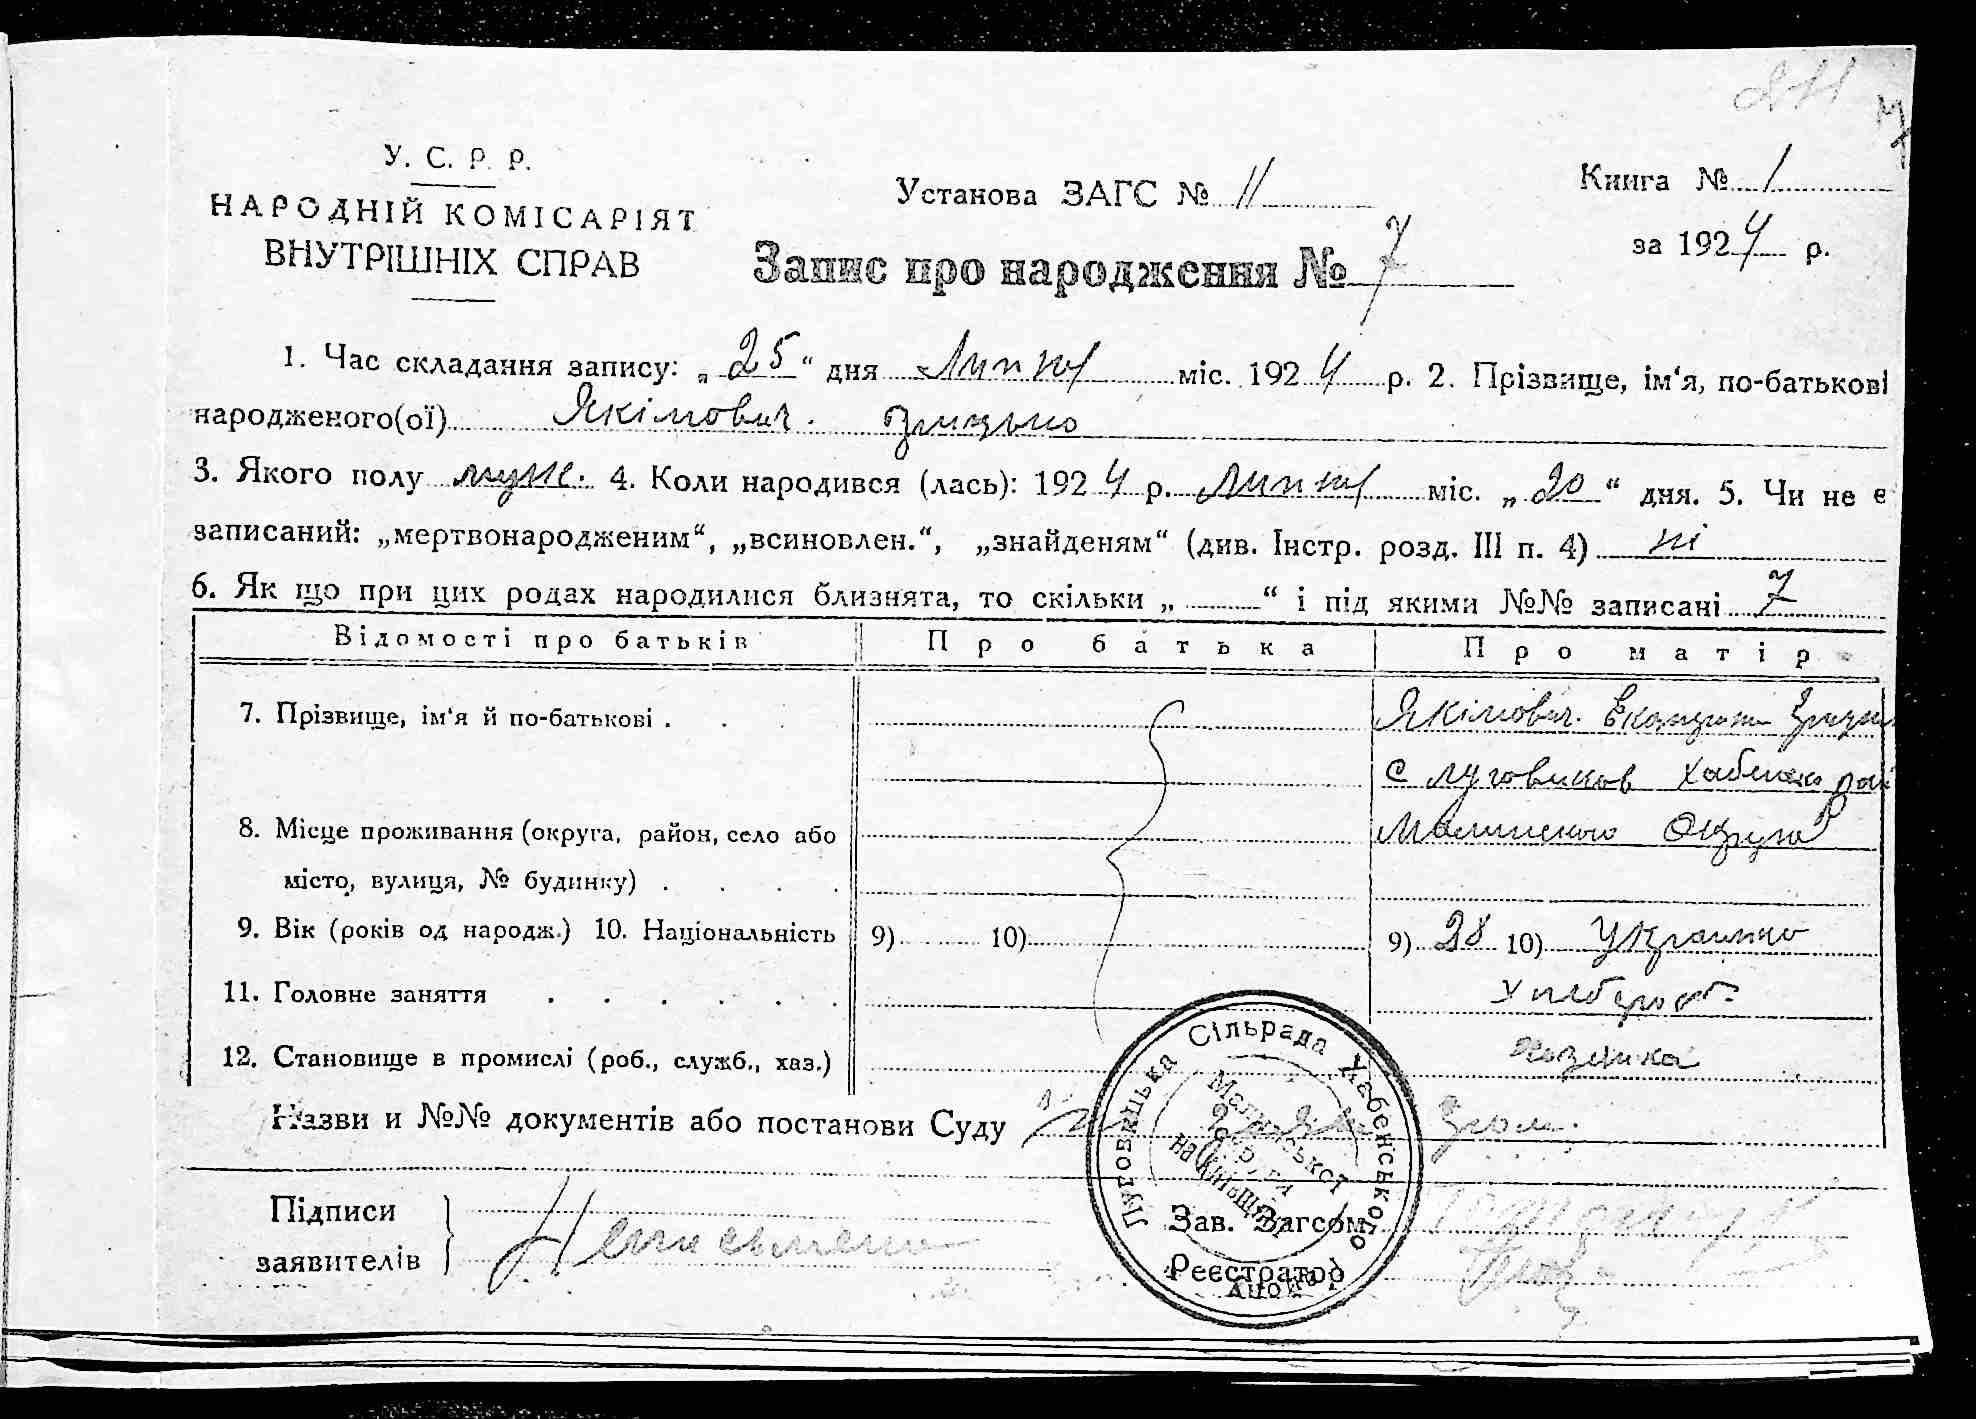 У. С. Р. Р.
НАРОДНІЙ КОМІСАРІЯТ
ВНУТРІШНІХ СПРАВ
Установа ЗАГС № 11
Книга № 1
за 1924 р.
Запис про народження № 7
1. Час складання запису: „25“ дня Липня міс. 1924 р. 2. Прізвище, ім‘я, по-батькові
народженого(ої) Якімович. Грицько
3. Якого полу муж. 4. Коли народився (лась): 1924 р. Липня міс. „20“ дня. 5. Чи не є
записаний: „мертвонародженим“, „всиновлен.“, „знайденям“ (див. Інстр. розд. III п. 4) ні
6. Як що при цих родах народилися близнята, то скільки „ “ і під якими №№ записані 7
Відомості про батьків Про батька Про матір
7. Прізвище, ім‘я й по-батькові . Якімович.
с Луговиков
8. Місце проживання (округа, район, село або Малинского Округа
місто, вулиця, № будинку)
9. Вік (років од народж.) 10. Національність 9) 10) 9) 28 10) Украинка
11. Головне заняття Хлебороб.
12. Становище в промислі (роб., служб., хаз.) хозяика
Назви и №№ документів або постанови Суду
Підписи
заявителів
Неписьмено
Зав. Загсом
Реєстратор
Луговицька Сільрада Хабенського району
Малинської округи
на Київщині